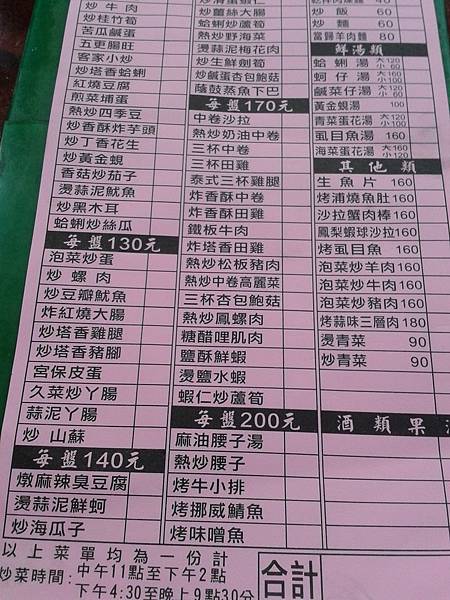 炒牛肉
炒桂竹筍
苦瓜鹹蛋
五更腸旺
客家小炒
炒塔香蛤蜊
紅燒豆腐
煎菜埔蛋
熱炒四季豆
炒香酥炸芋頭
炒丁香花生
炒黃金蜆
香菇炒茄子
燙蒜泥魷魚
炒黑木耳
蛤蜊炒絲瓜
每盤130元
泡菜炒蛋
炒螺肉
炒豆瓣魷魚
炸紅燒大腸
炒塔香雞腿
炒塔香豬腳
宮保皮蛋
久菜炒丫腸
蒜泥丫腸
炒山蘇
每盤140元
燉麻辣臭豆腐
燙蒜泥鮮蚵
炒海瓜子
炒薑絲大腸
蛤蜊炒蘆筍
熱炒野海菜
燙蒜泥梅花肉
炒生鮮劍筍
炒鹹蛋杏包鮑菇
蔭鼓蒸魚下巴
每盤170元
中卷沙拉
熱炒奶油中卷
三杯中卷
三杯田雞
泰式三杯雞腿
炸香酥中卷
炸香酥田雞
鐵板牛肉
炸塔香田雞
熱炒松板豬肉
熱炒中卷高麗菜
三杯杏包鮑菇
熱炒鳳螺肉
糖醋哩肌肉
鹽酥鮮蝦
燙鹽水蝦
蝦仁炒蘆筍
每盤200元
麻油腰子湯
熱炒腰子
烤牛小排
烤挪威鯖魚
烤味噌魚
炒飯 60
炒麵 60
當歸羊肉麵 80
鮮湯類
蛤蜊湯 大120 小60
蚵仔湯 大160 小100
鹹菜仔湯 大120 小60
黃金蜆湯 100
青菜蛋花湯 大120 小100
虱目魚湯 160
海菜蛋花湯 大160 小120
其他類
生魚片 160
烤浦燒魚肚 160
沙拉蟹肉棒 160
鳳梨蝦球沙拉 160
烤虱目魚 160
泡菜炒羊肉 160
泡菜炒牛肉 160
泡菜炒豬肉 160
烤蒜味三層肉 180
燙青菜 90
炒青菜 90
酒類果
以上菜單均為一份計
炒菜時間:中午11點至下午2點
下午4:30至晚上9點30分
合計